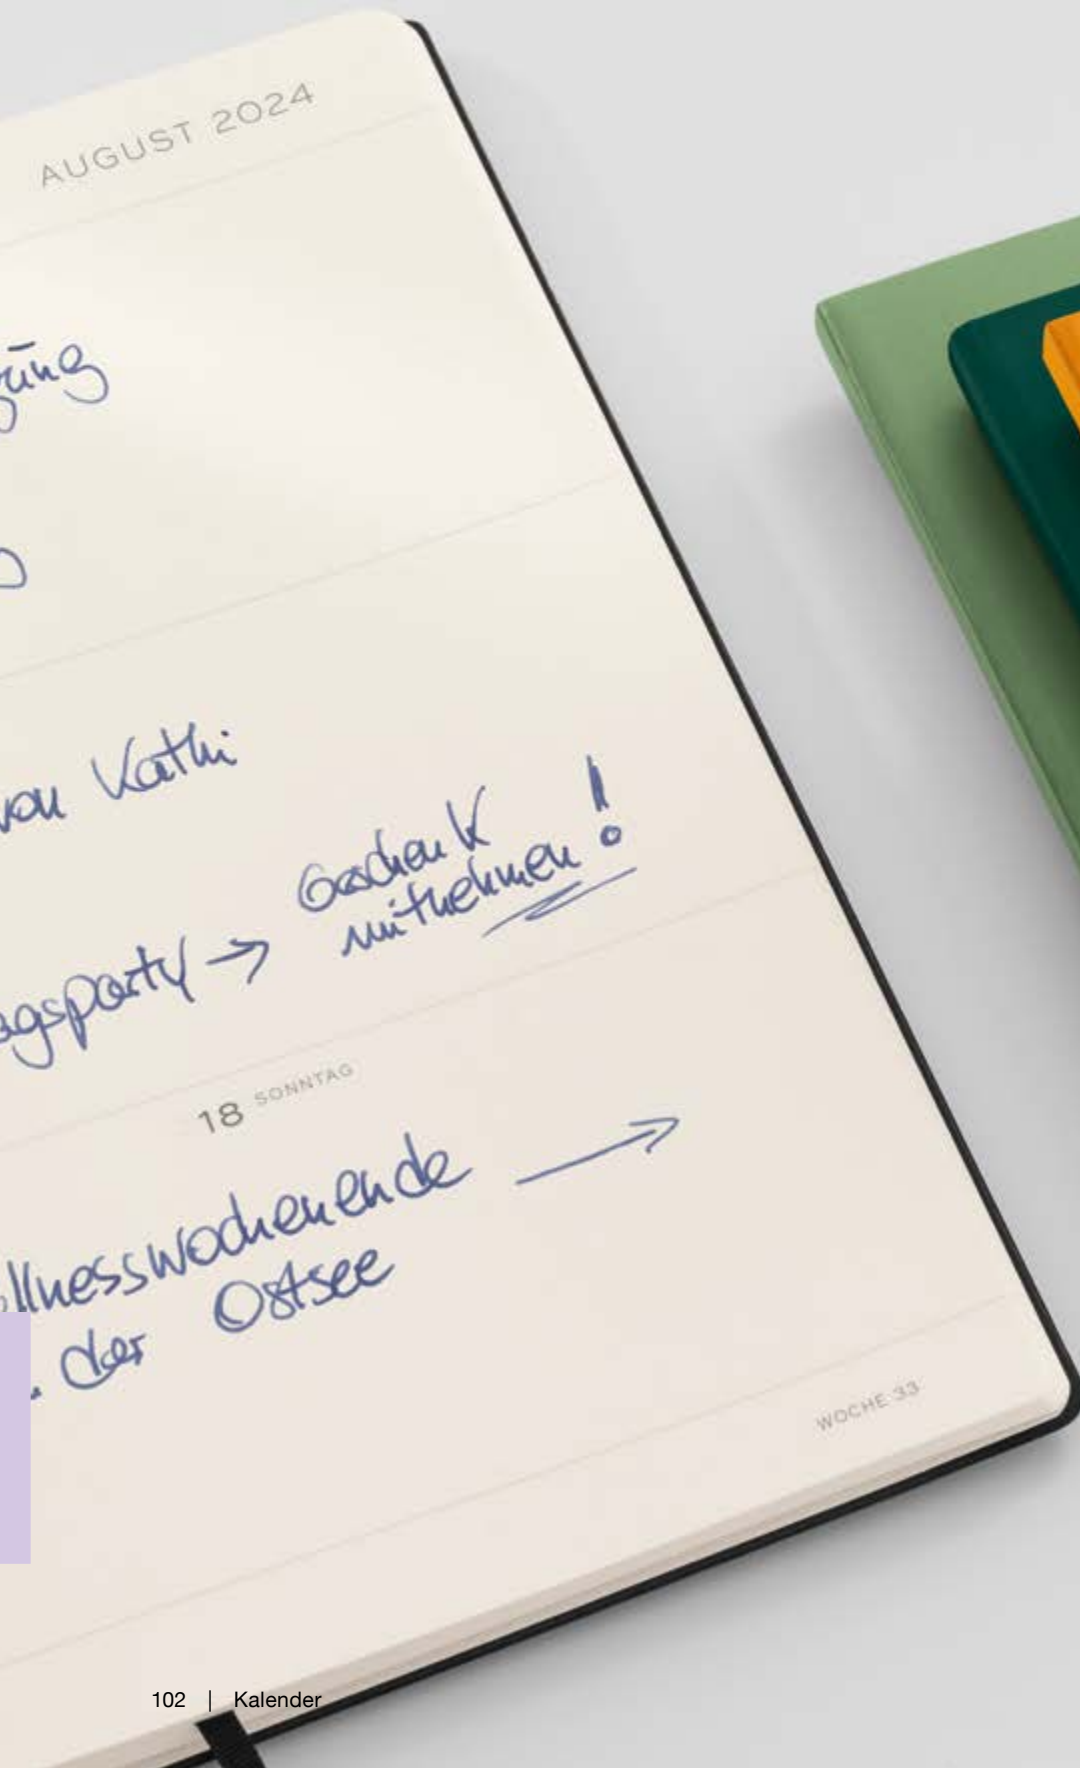 AUGUST 2024
von Kathi
Geschenk
mitnehmen!
agsparty →
18 SONNTAG
llnesswochenende →
der Ostsee
WOCHE 33
102 | Kalender